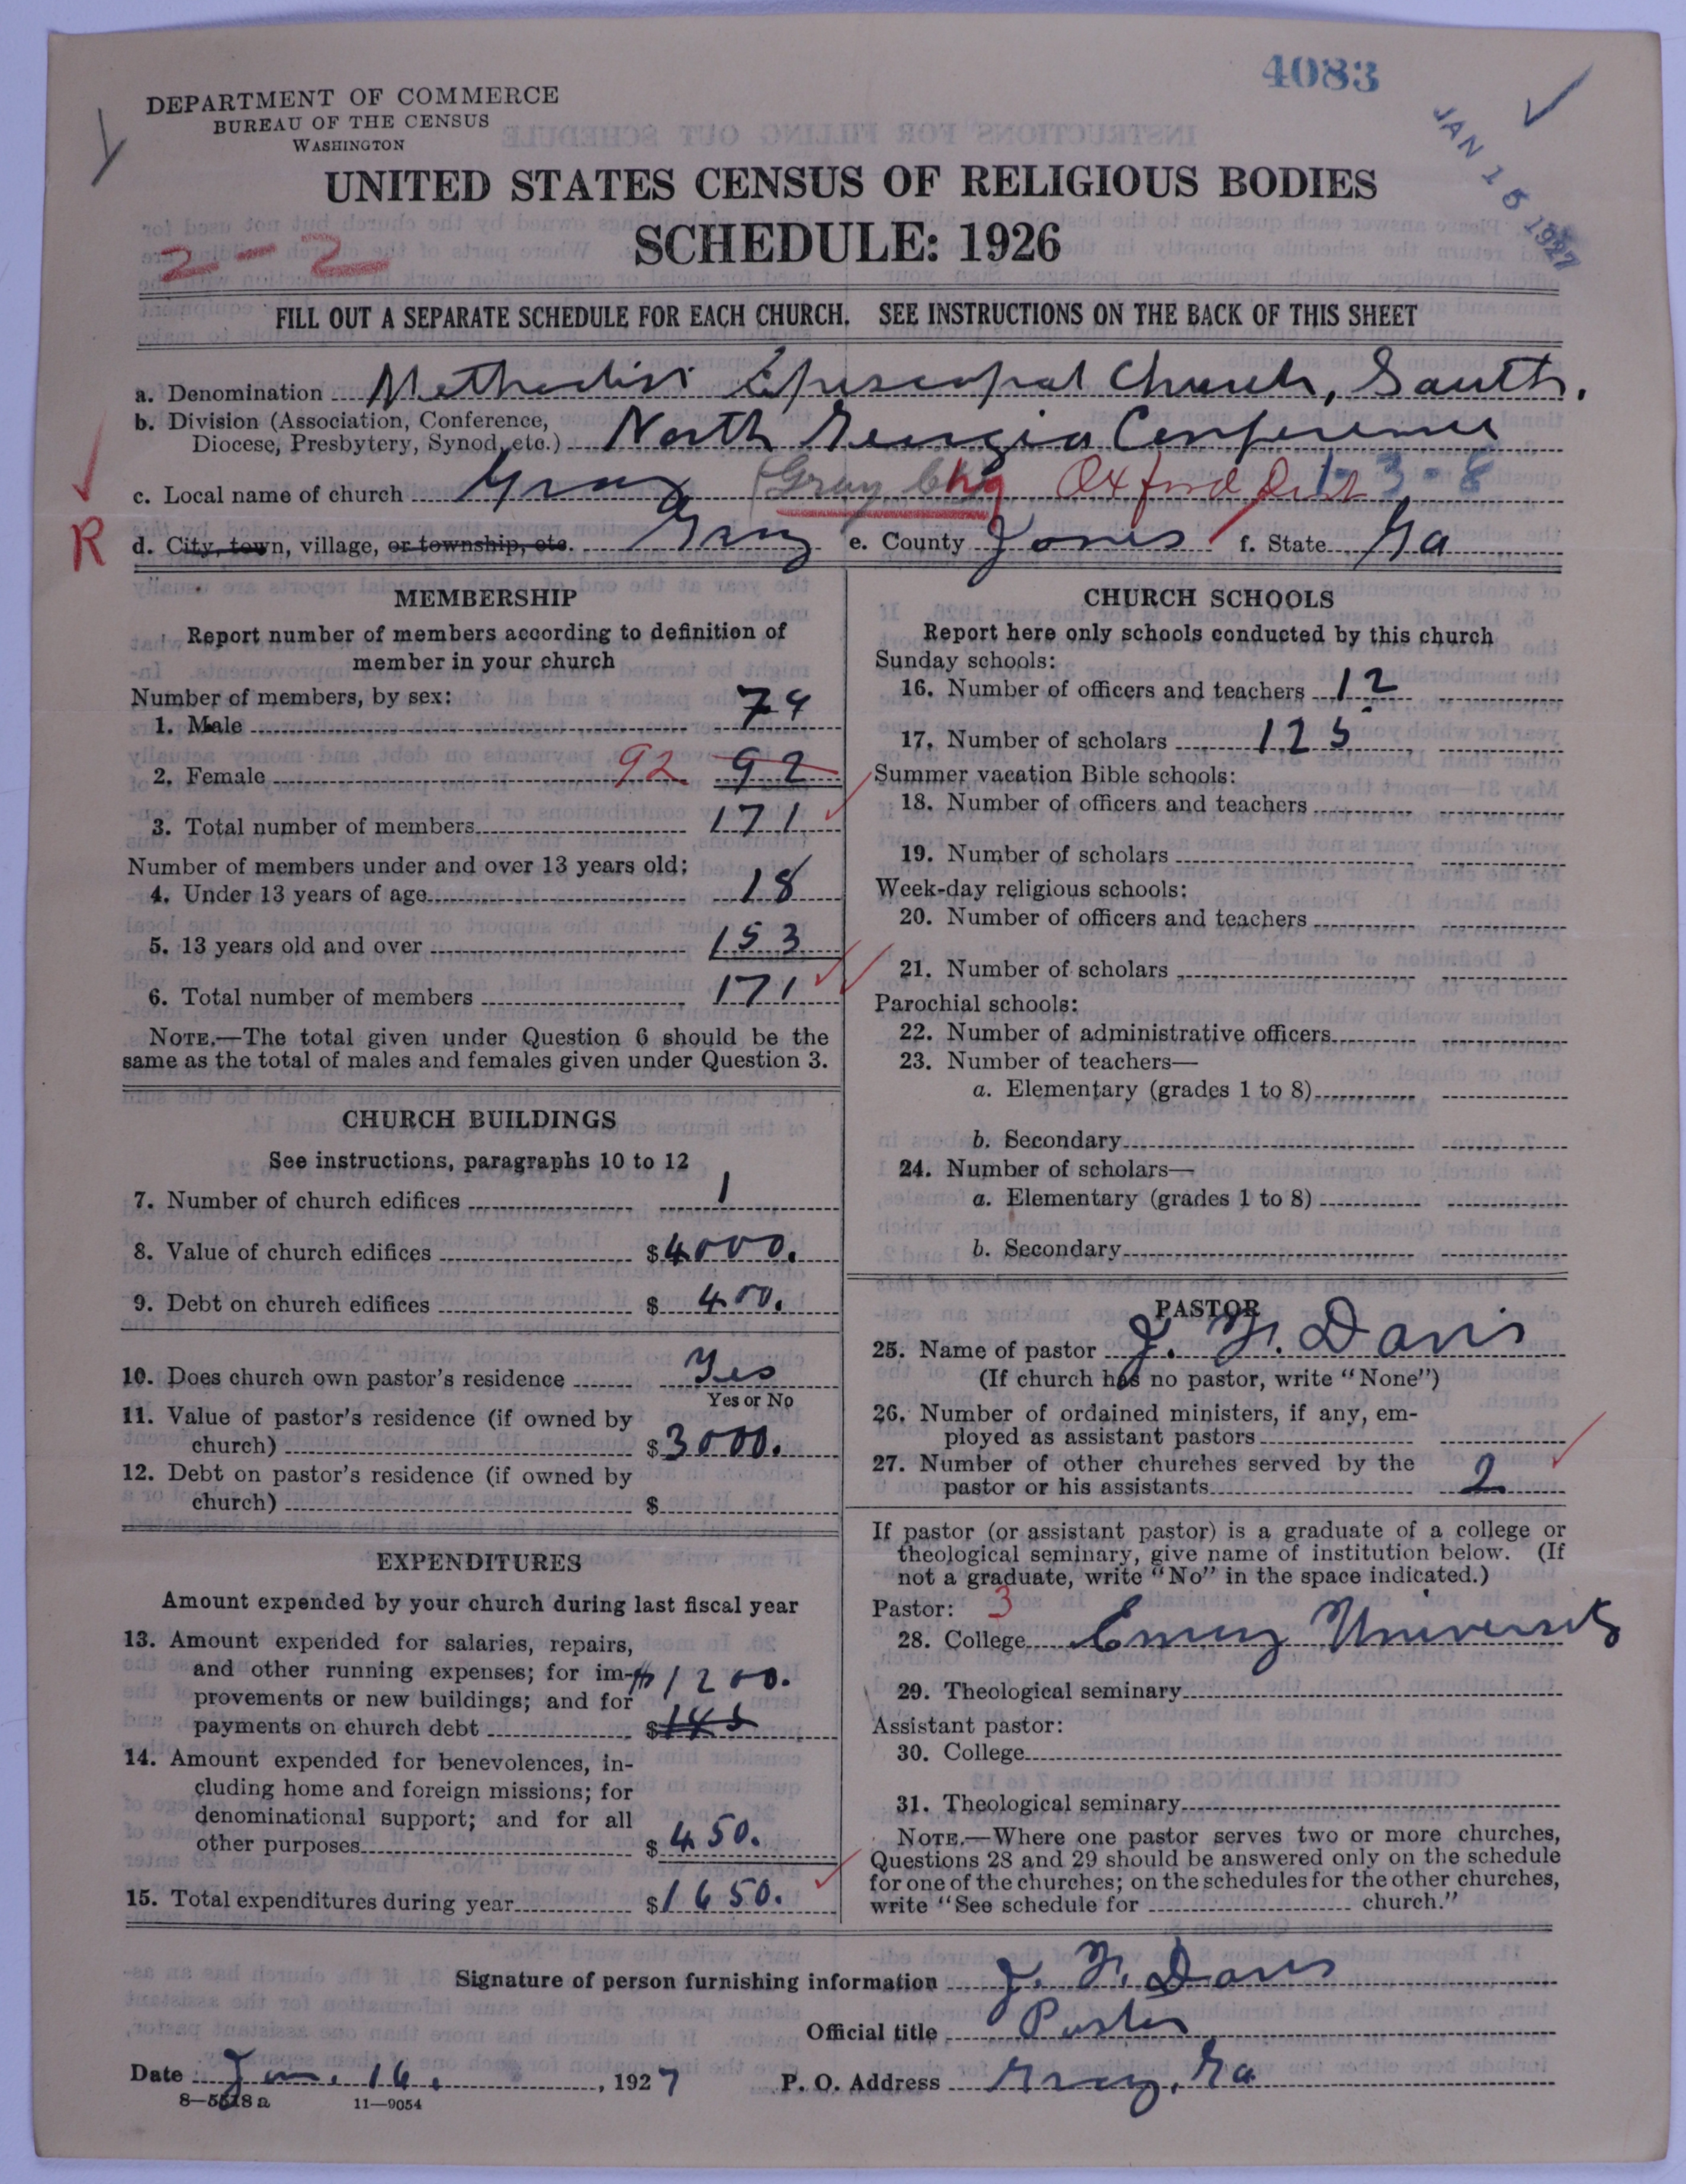 4083
DEPARTMENT OF COMMERCE
BUREAU OF THE CENSUS
WASHINGTON
JAN 15 1927
UNITED STATES CENSUS OF RELIGIOUS BODIES
SCHEDULE: 1926
2-2
FILL OUT A SEPARATE SCHEDULE FOR EACH CHURCH. SEE INSTRUCTIONS ON THE BACK OF THIS SHEET
a. Denomination Methodist Episcopal Church, South.
b. Division (Association, Conference,
Diocese, Presbytery, Synod, etc.) North Georgia Conference
c. Local name of church Gray (Gray Chg Oxford Dist 1-3-8
R
d. City, town, village, or township, etc. Gray e. County Jones f. State Ga
MEMBERSHIP
Report number of members according to definition of
member in your church
Number of members, by sex:
1. Male 79
2. Female 92 92
3. Total number of members 171
Number of members under and over 13 years old:
4. Under 13 years of age 18
5. 13 years old and over 153
6. Total number of members 171
NOTE.—The total given under Question 6 should be the
same as the total of males and females given under Question 3.
CHURCH BUILDINGS
See instructions, paragraphs 10 to 12
7. Number of church edifices 1
8. Value of church edifices $4000.
9. Debt on church edifices $ 400.
10. Does church own pastor's residence Yes
Yes or No
11. Value of pastor's residence (if owned by
church) $3000.
12. Debt on pastor's residence (if owned by
church) $
EXPENDITURES
Amount expended by your church during last fiscal year
13. Amount expended for salaries, repairs,
and other running expenses; for im- $1200.
provements or new buildings; and for
payments on church debt $
14. Amount expended for benevolences, in-
cluding home and foreign missions; for
denominational support; and for all
other purposes $ 450.
15. Total expenditures during year $1650.
CHURCH SCHOOLS
Report here only schools conducted by this church
Sunday schools:
16. Number of officers and teachers 12
17. Number of scholars 125
Summer vacation Bible schools:
18. Number of officers and teachers
19. Number of scholars
Week-day religious schools:
20. Number of officers and teachers
21. Number of scholars
Parochial schools:
22. Number of administrative officers
23. Number of teachers—
a. Elementary (grades 1 to 8)
b. Secondary
24. Number of scholars—
a. Elementary (grades 1 to 8)
b. Secondary
PASTOR
25. Name of pastor J. F. Davis
(If church has no pastor, write "None")
26. Number of ordained ministers, if any, em-
ployed as assistant pastors
27. Number of other churches served by the
pastor or his assistants 2
If pastor (or assistant pastor) is a graduate of a college or
theological seminary, give name of institution below. (If
not a graduate, write "No" in the space indicated.)
Pastor: 3
28. College Emory University
29. Theological seminary
Assistant pastor:
30. College
31. Theological seminary
NOTE.—Where one pastor serves two or more churches,
Questions 28 and 29 should be answered only on the schedule
for one of the churches; on the schedules for the other churches,
write "See schedule for church."
Signature of person furnishing information J. F. Davis
Official title Pastor
Date Jan. 16, 1927 P. O. Address Gray, Ga
8—5518a 11—9054